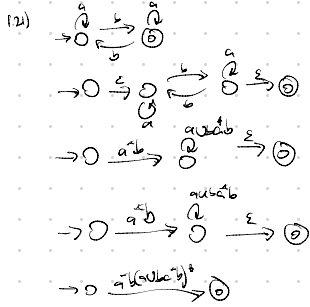 1.21)
a a
b
b
b a
ε ε
b
a
a∪ba*b
a*b ε
a∪ba*b
a*b ε
a*b(a∪ba*b)*